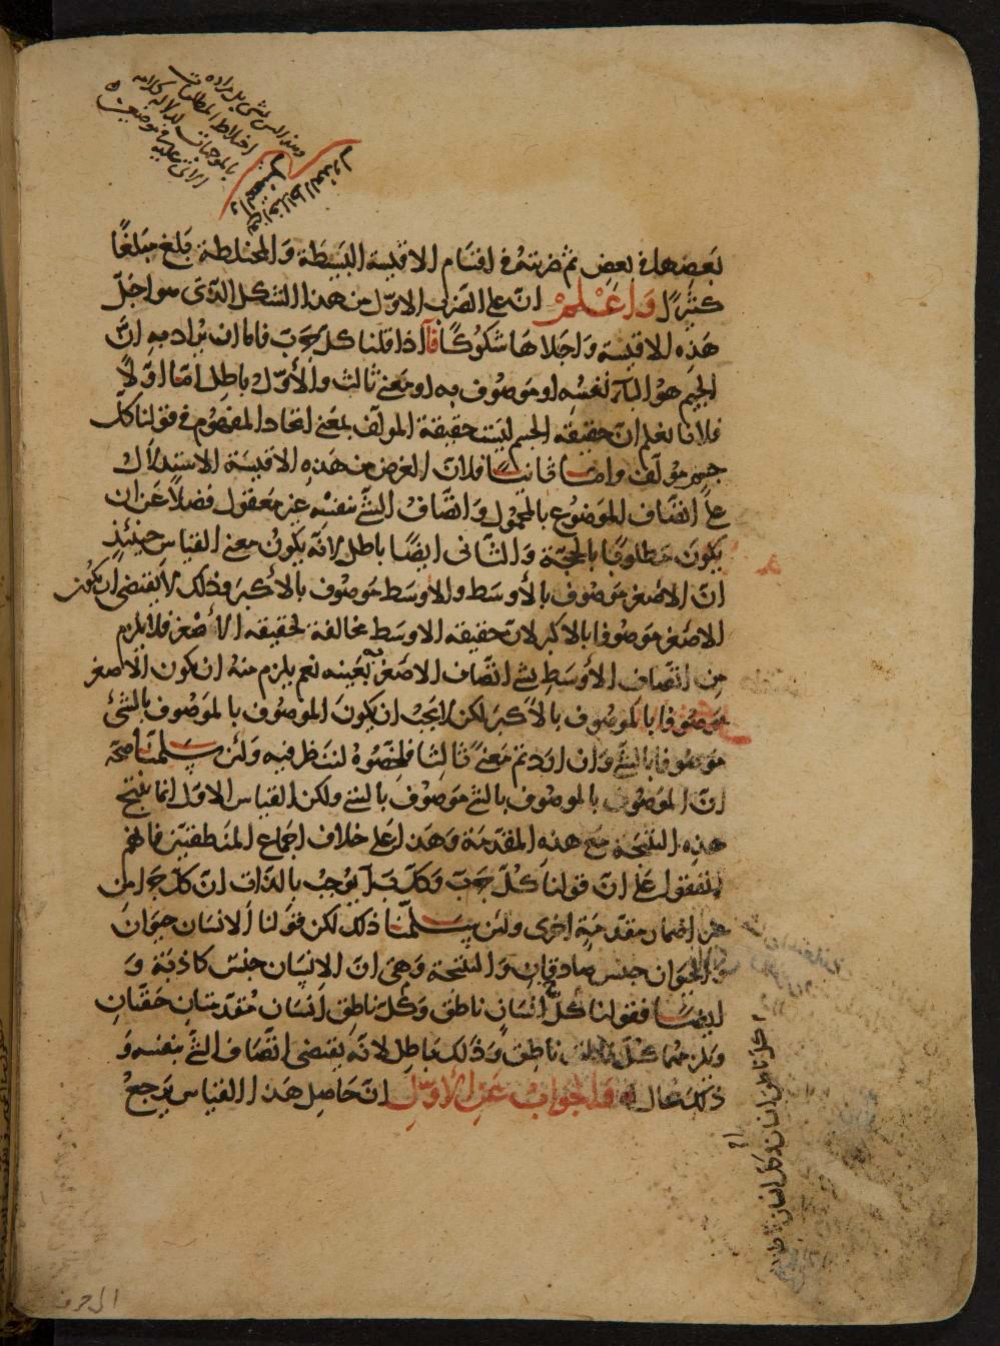 بعضها في بعض ثم ضربته في اقسام الاقيسة البسيطة والمختلطة بلغ مبلغًا
كثيرًا واعلم ان على الضرب الاول من هذا الشكل الذى هو اجل
هذه الاقيسة واجلاها شكوكًا فآ اذا قلنا كل ج ب فاما ان يراد به ان
الجيم هو البآ نفسه او موصوف به او معنى ثالث والأول باطل اما اولًا
فلانا نعلم ان حقيقة الجسم ليست حقيقة المولف بمعنى اتحاد المفهوم في قولنا كل
جسم مؤلف واما ثانيًا فلان الغرض من هذه الاقيسة الاستدلال
على اتصاف الموضوع بالمحمول واتصاف الشئ بنفسه غير معقول فضلًا عن ان
يكون مطلوبًا بالحجة والثانى ايضًا باطل لانه يكون معنى القياس حينئذٍ
ان الاصغر موصوف بالأوسط والاوسط موصوف بالأكبر وذلك لا يقتضى ان يكون
الاصغر موصوفا بالاكبر لان حقيقة الاوسط مخالفة لحقيقة الأصغر فلا يلزم
من اتصاف الأوسط بشئ اتصاف الاصغر به بعينه نعم يلزم منه ان يكون الاصغر
موصوفا بالموصوف بالأكبر لكن لا يجب ان يكون الموصوف بالموصوف بالشئ
موصوفا بالشئ وان اردتم معنىً ثالثا فلخصوه لننظر فيه ولئن سلمنا صحة
ان الموصوف بالموصوف بالشئ موصوف بالشئ ولكن القياس الاول انما ينتج
هذه النتيجة مع هذه المقدمة وهذا على خلاف اجماع المنطقيين فانهم
اتفقوا على ان قولنا كل ج ب وكل ب آ يوجب بالذات ان كل ج ا من
غير اضمار مقدمة اخرى ولئن سلمنا ذلك لكن قولنا الانسان حيوان
والحيوان جنس صادقان والنتيجة وهى ان الانسان جنس كاذبة و
ايضًا فقولنا كل انسان ناطق وكل ناطق انسان مقدمتان حقتان
ويلزمهما كل ناطق ناطق وذلك باطل لانه يقتضى اتصاف الشئ بنفسه و
ذلك محال والجواب عن الأول ان حاصل هذا القياس يرجع
كل ناطق انسان وكل انسان ناطق